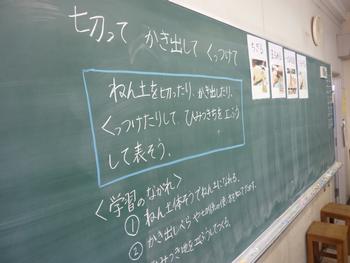 切って かき出して くっつけて
ねん土を切ったり、かき出したり、
くっつけたりして ひみつきちを工ふう
して表そう。
＜学習のながれ＞
① ねん土体そうでねん土になれる。
② かき出しべら や
ひみつき地を工ふうしてつくる。